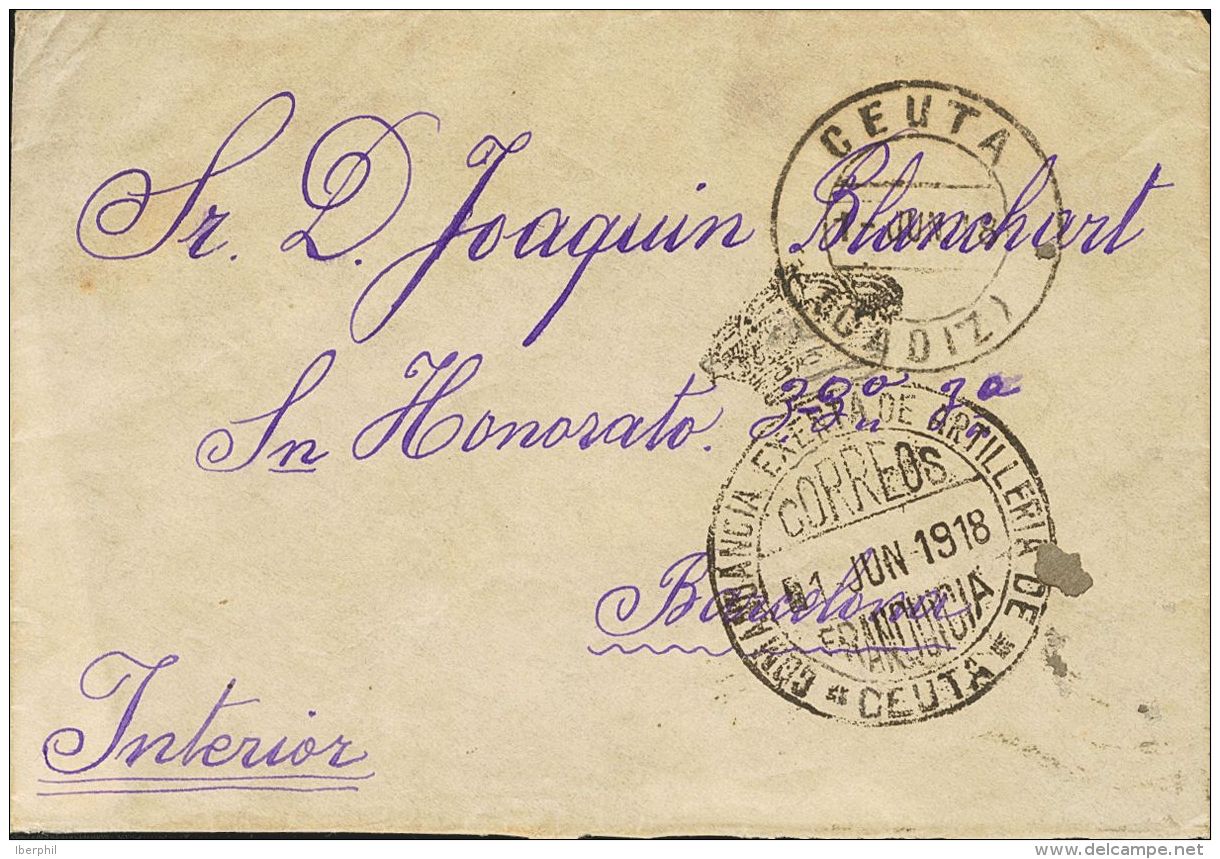 CEUTA
1-JUN.18
(CADIZ)
Sr. D. Joaquin Blanchart
Sn Honorato.
COMANDANCIA EXENTA DE ARTILLERIA DE
CORREOS
1 JUN 1918
FRANQUICIA
CEUTA
Barcelona
Interior
Iberphil
www.delcampe.net